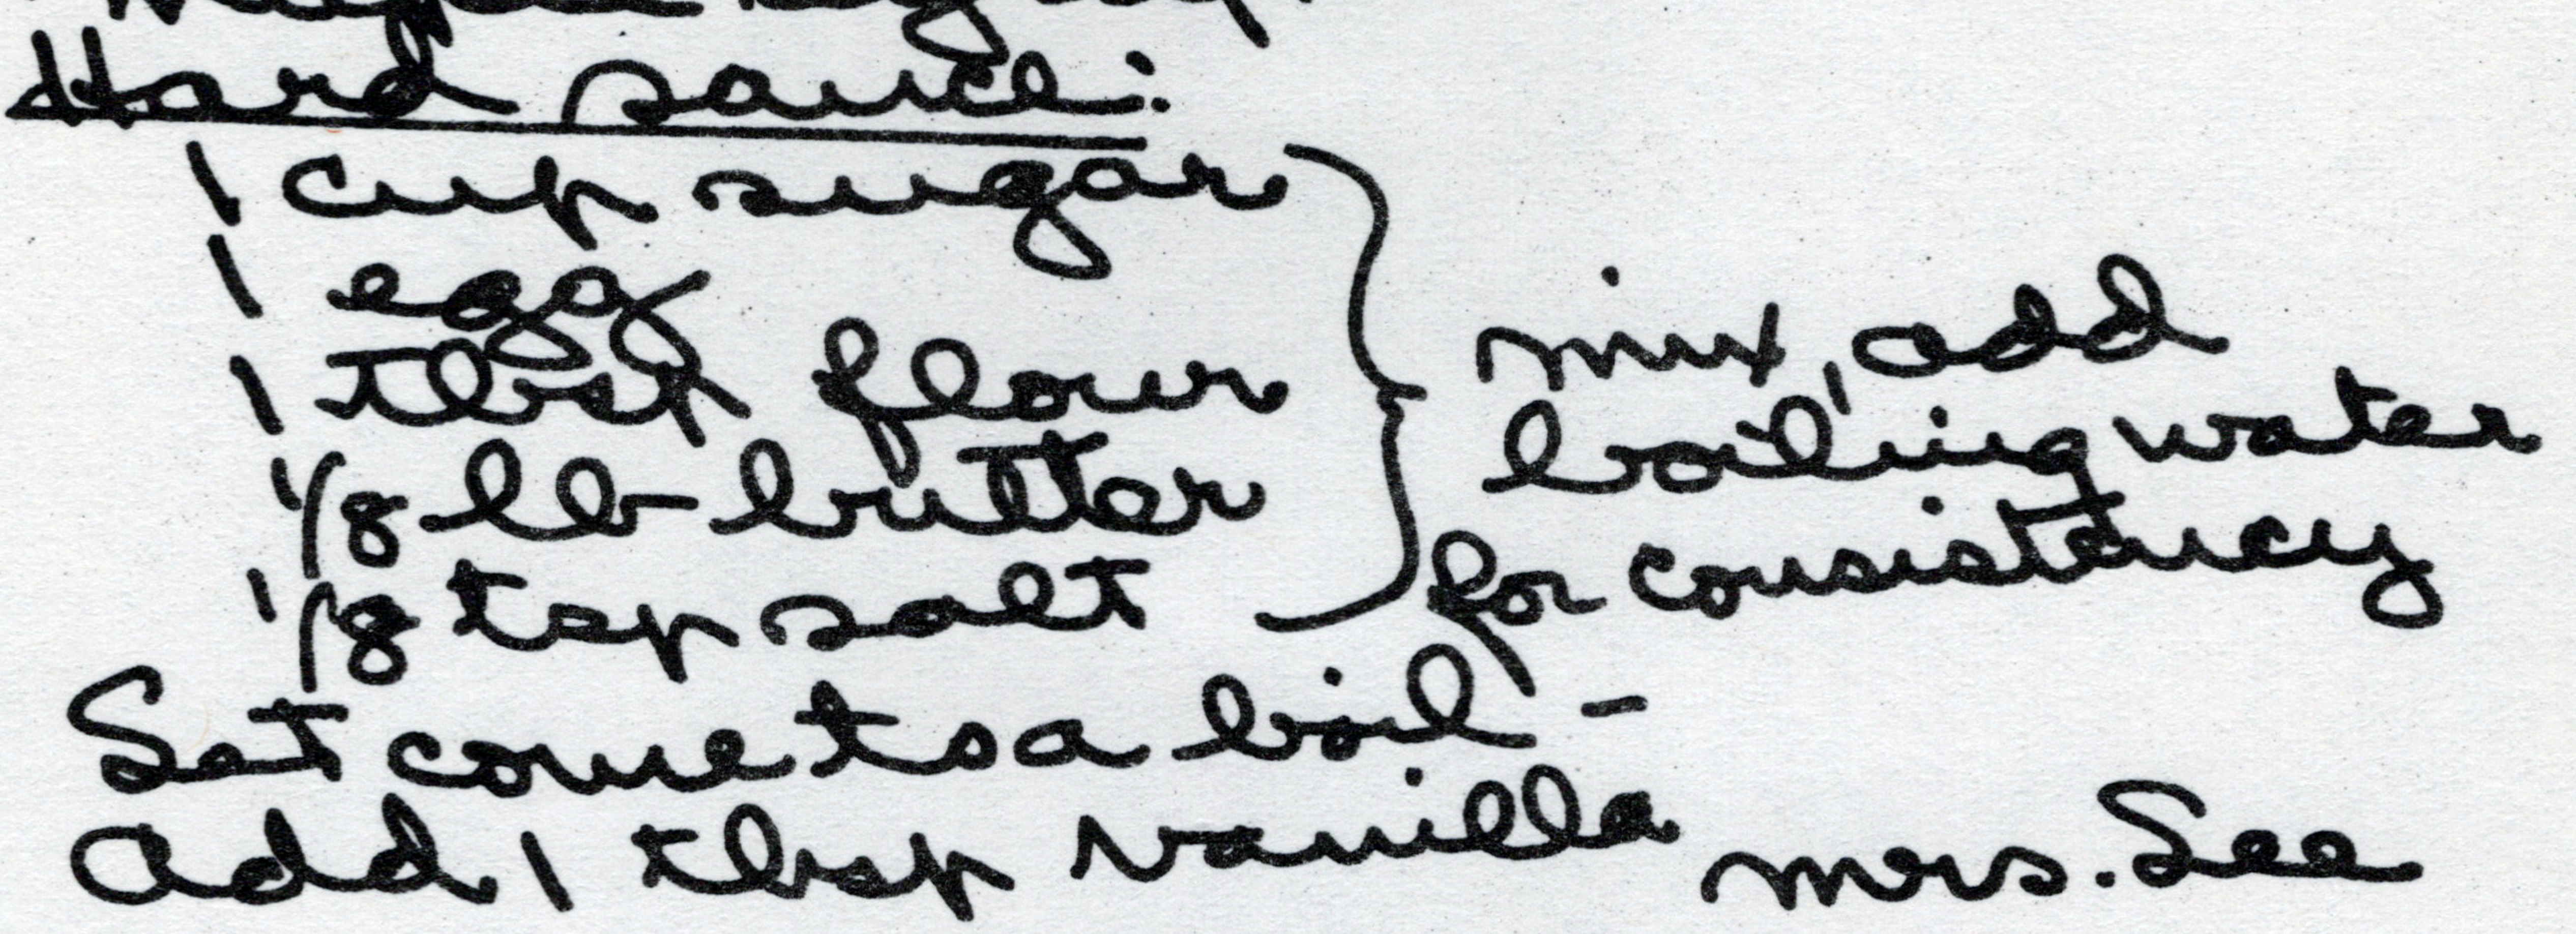 Hard sauce:
1 cup sugar
1 egg
1 tbsp flour
1/8 lb butter
1/8 tsp salt
mix, add
boiling water
for consistency
Set come to a boil -
add 1 tbsp vanilla
Mrs. See